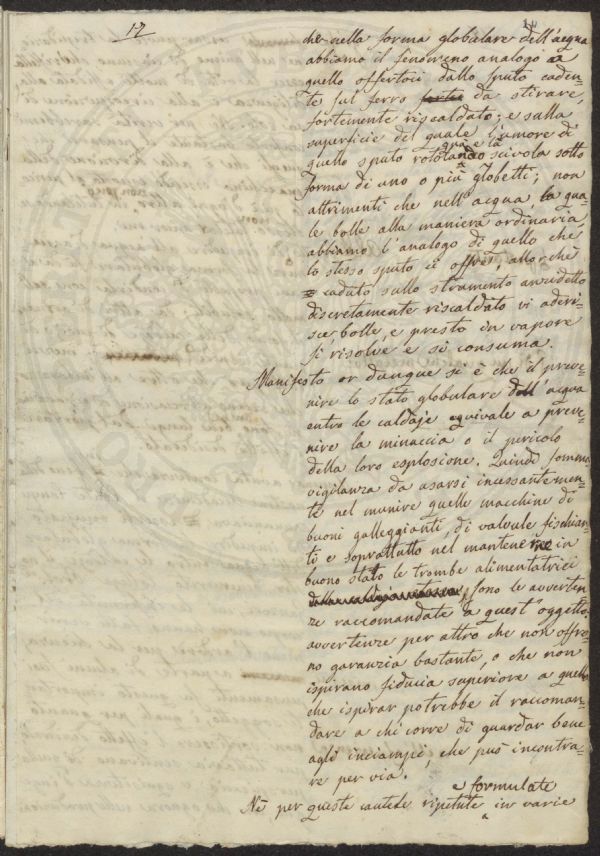 17
che nella forma globulare dell'acqua
abbiamo il fenomeno analogo a
quello offertoci dallo sputo caden=
te sul ferro forte da stirare,
fortemente riscaldato; e sulla
superficie del quale l'umore di
quello sputo rotolando qua e là scivola sotto
forma di uno o più globetti; non
altrimenti che nell'acqua la qua=
le bolle alla maniera ordinaria
abbiamo l'analogo di quello che
lo stesso sputo ci offre, allorchè
caduto sullo strumento anzidetto
discretamente riscaldato vi aderi=
sce bolle, e presto in vapore
si risolve e si consuma.
Manifesto or dunque si è che il preve=
nire lo stato globulare dell'acqua
entro le caldaje equivale a preve=
nire la minaccia o il pericolo
della loro esplosione. Quindi somma
vigilanza da usarsi incessantemen=
te nel munire quelle macchine di
buoni galleggianti, di valvule fischian=
ti e soprattutto nel mantenere in
buono stato le trombe alimentatrici
sono le avverten=
ze raccomandate a quest'oggetto:
avvertenze per altro che non offro=
no garanzia bastante, o che non
ispirano fiducia superiore a quella
che ispirar potrebbe il raccoman=
dare a chi corre di guardar bene
agli inciampi, che può incontra=
re per via.
Nè per queste cautele ripetute e formulate in varie